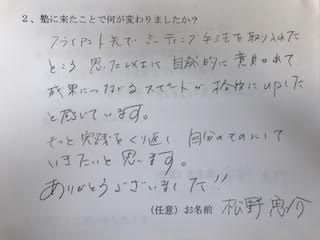 2、塾に来たことで何が変わりましたか?
クライアント先でミーティング手法を取り入れた
ところ、思った以上に自発的に意見が出て
成果につながるスピードが格段にupした
と感じています。
もっと実践をくり返し、自分のものにして
いきたいと思います。
ありがとうございました!!
(任意) お名前 松野 恵介